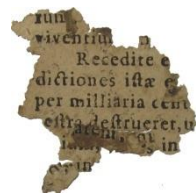 runt
viventium
Recedite e
dictiones istæ e
per milliaria cent
estra destrueret, u
in
in